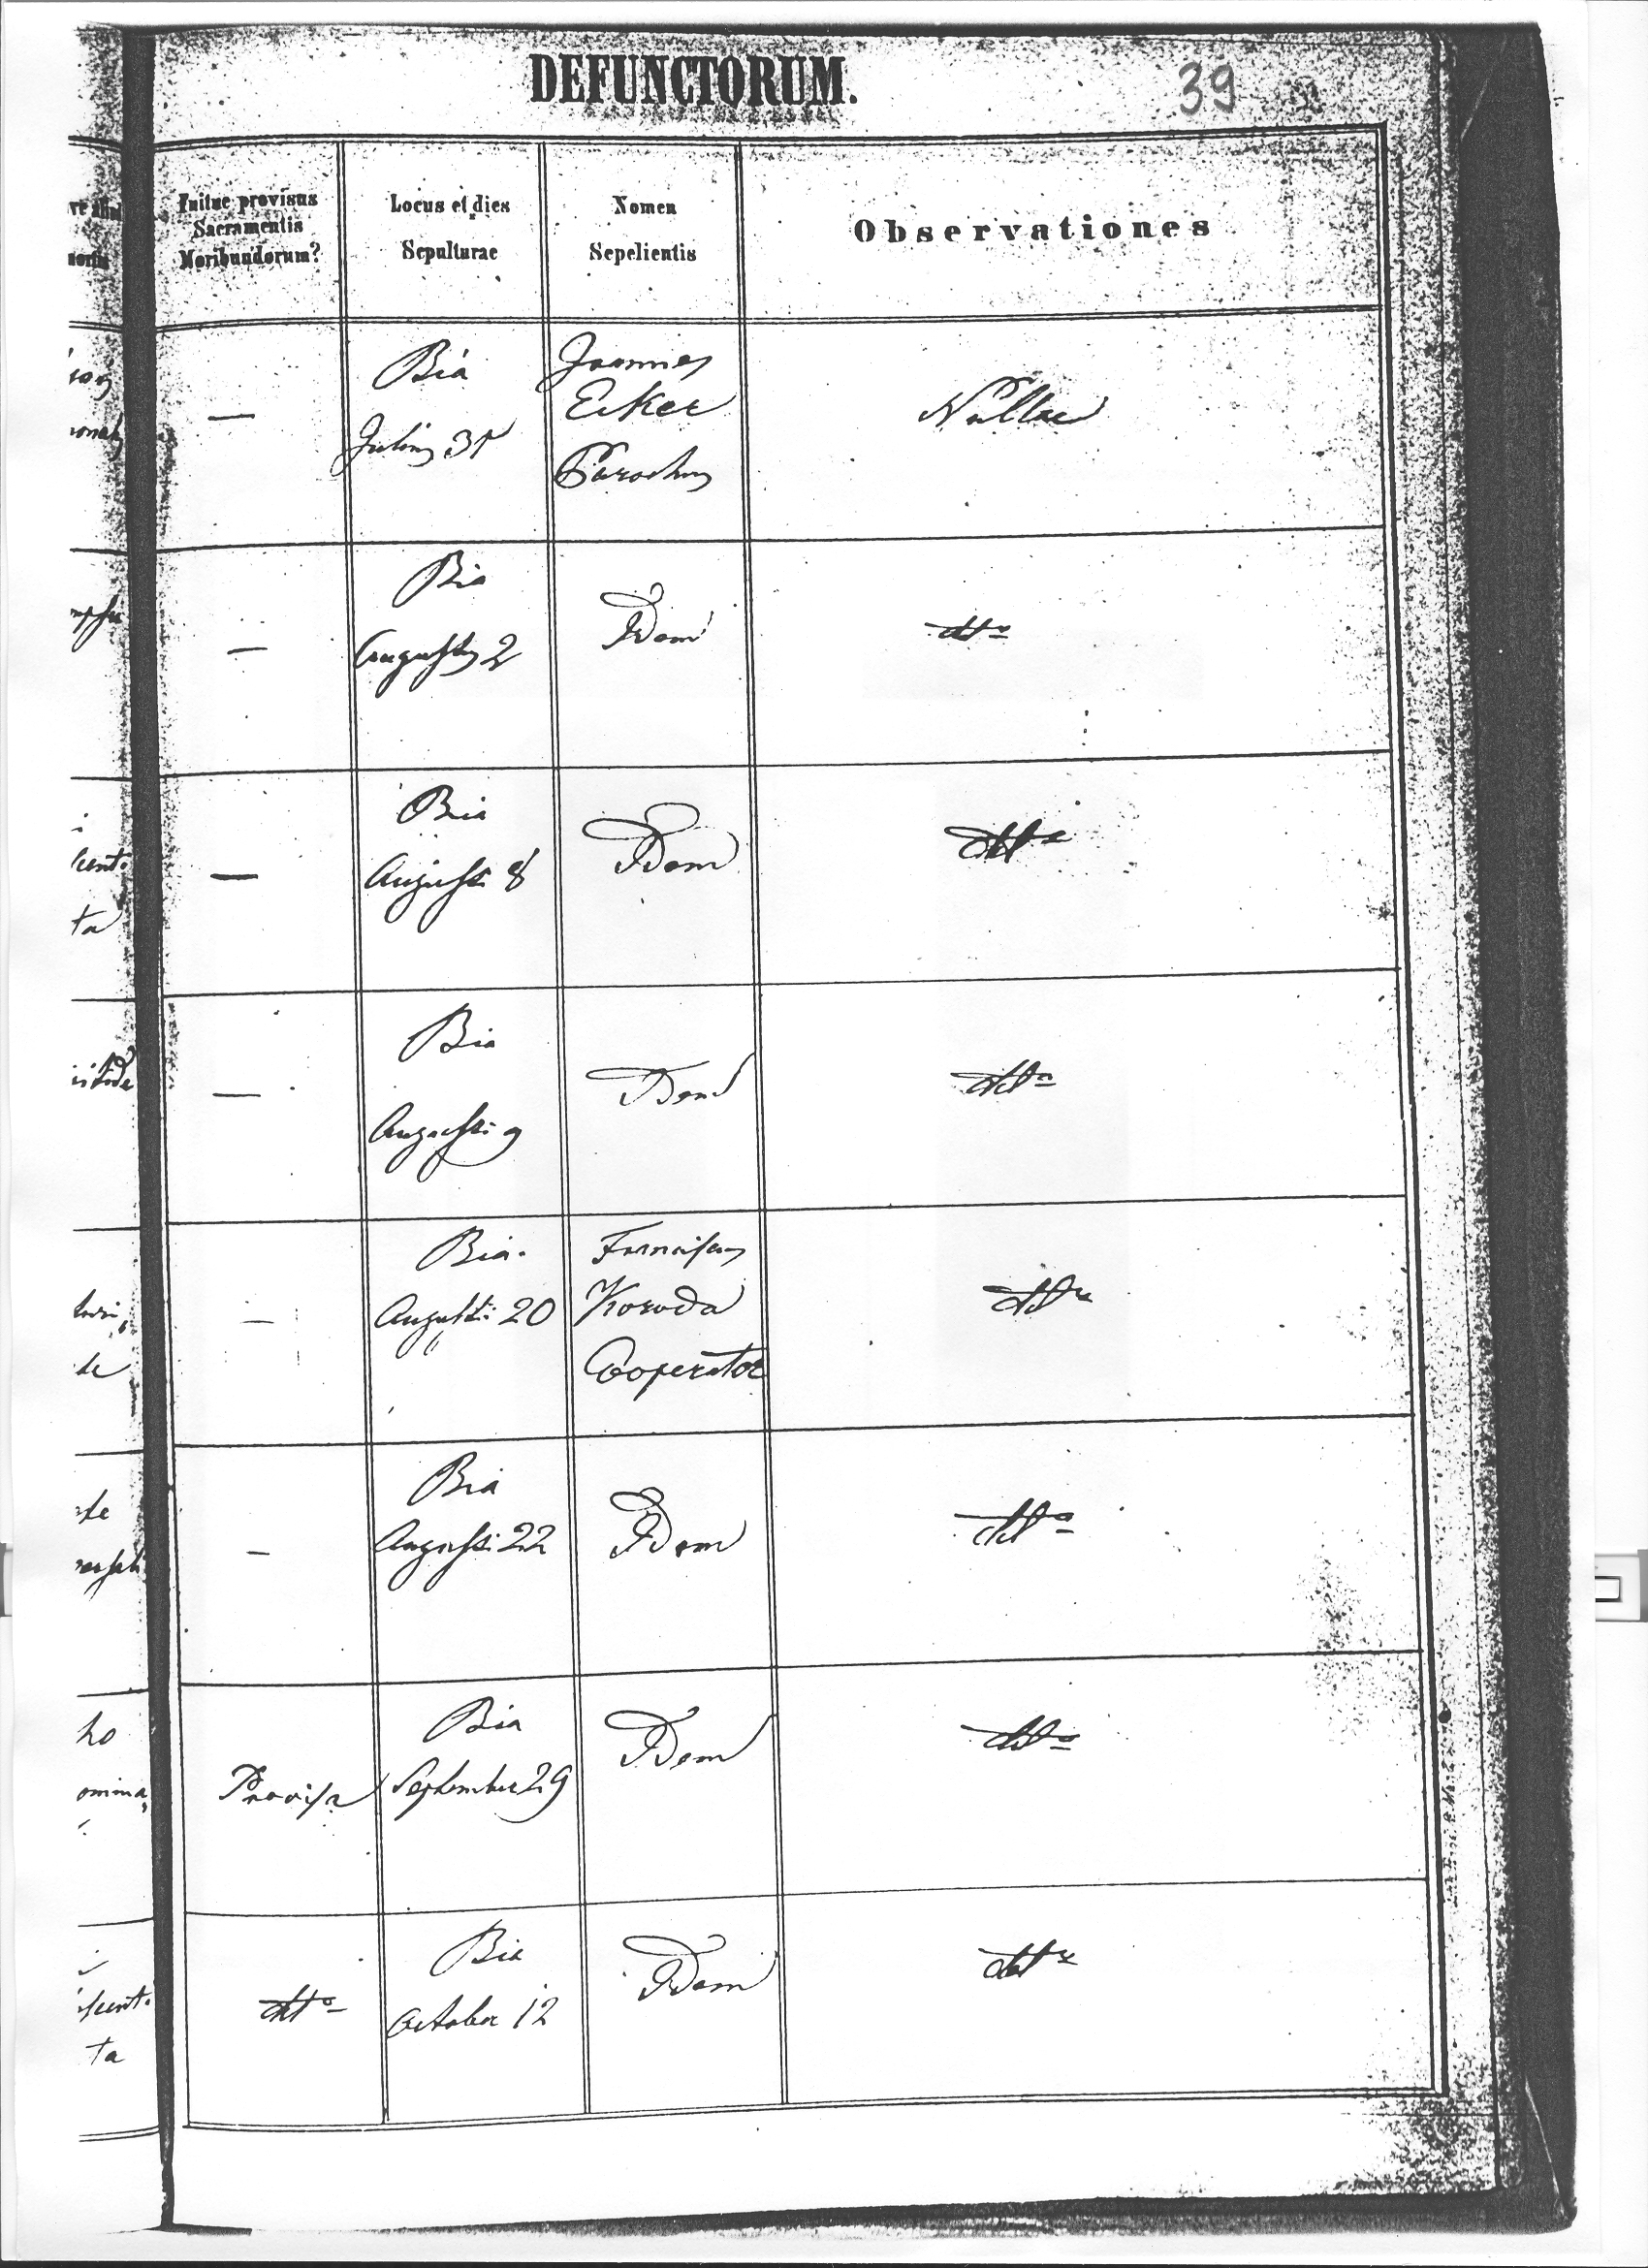 DEFUNCTORUM.
39
Fuitne provisus
Sacramentis
Moribundorum?
Locus et dies
Sepulturae
Nomen
Sepelientis
Observationes
—
Bia
Julius 31
Joannes
Ecker
Parochus
Nullae
—
Bia
Augustus 2
Idem
dtto
—
Bia
Augusti 8
Idem
dtto
—
Bia
Augusti 9
Idem
dtto
—
Bia.
Augusti 20
Franciscus
Koroda
Cooperator
dtto
—
Bia
Augusti 22
Idem
dtto
Provisa
Bia
September 29
Idem
dtto
dtto
Bia
October 12
Idem
dtto
ta
de
ho
omina
ta